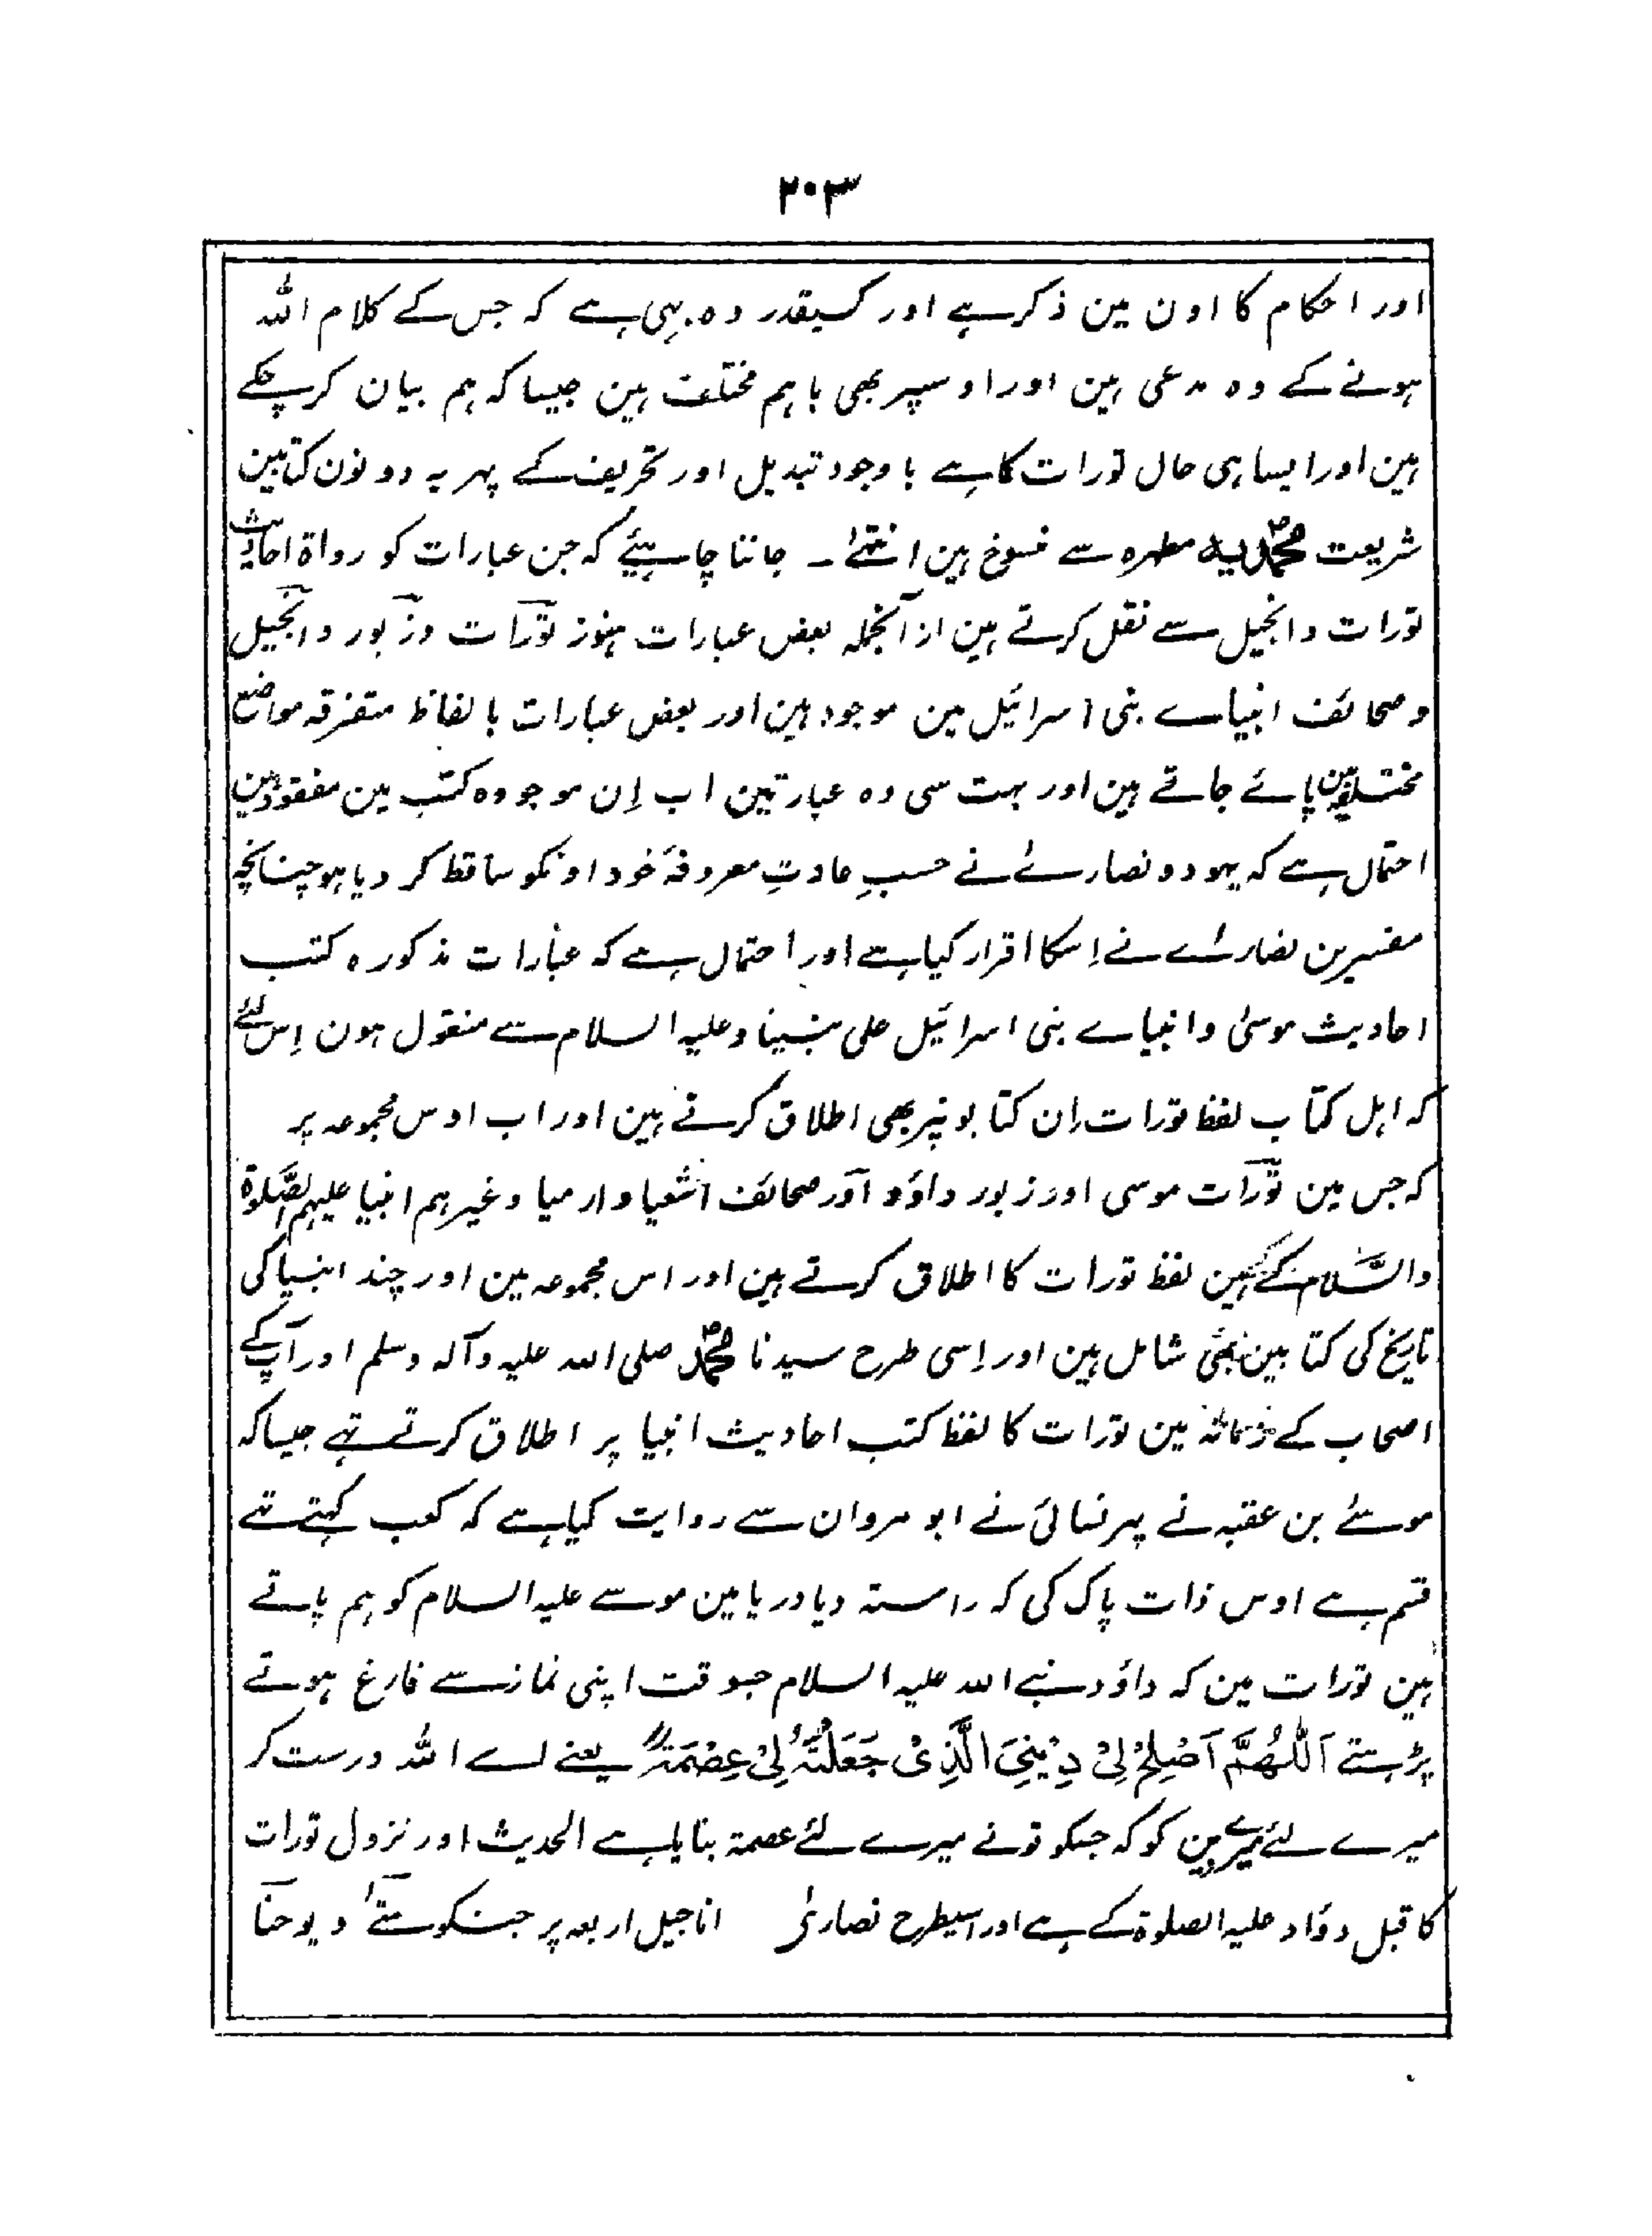 ۲۰۳
اور احکام کا اون مین ذکر ہے اور کسیقدر وہ بہی ہے کہ جس کے کلام اللہ
ہونے کے وہ مدعی ہین اور اوسپر بھی باہم مختلف ہین جیسا کہ ہم بیان کر چکے
ہین اور ایسا ہی حال تورات کا ہے باوجود تبدیل اور تحریف کے پہر یہ دونون کتابین
شریعت محمدیہ مطہرہ سے منسوخ ہین انتہیٰ ۔ جاننا چاہیئے کہ جن عبارات کو رواۃ احادیث
تورات وانجیل سے نقل کرتے ہین از انجملہ بعض عبارات ہنوز تورات وزبور وانجیل
وصحائف انبیاے بنی اسرائیل مین موجود ہین اور بعض عبارات بالفاظ متفرقہ مواضع
مختلفہ مین پائے جاتے ہین اور بہت سی وہ عبارتین اب اِن موجودہ کتب مین مفقود ہین
احتمال ہے کہ یہود ونصاریٰ نے حسبِ عادتِ معروفۂ خود اونکو ساقط کر دیا ہو چنانچہ
مفسرین نصاریٰ نے اِسکا اقرار کیا ہے اور احتمال ہے کہ عبارات مذکورہ کتب
احادیث موسیٰ وانبیاے بنی اسرائیل علی نبینا وعلیہ السلام سے منقول ہون اِس لئے
کہ اہل کتاب لفظ تورات اِن کتابونپر بھی اطلاق کرتے ہین اور اب اوس مجموعہ پر
کہ جس مین تورات موسی اور زبور داؤد اور صحائف اشعیا وارمیا وغیرہم انبیا علیہم الصَّلوۃ
والسَّلام کے ہین لفظ تورات کا اطلاق کرتے ہین اور اس مجموعہ مین اور چند انبیا کی
تاریخ کی کتابین بھی شامل ہین اور اِسی طرح سیدنا محمد صلی اللہ علیہ وآلہ وسلم اور آپ کے
اصحاب کے زمانہ مین تورات کا لفظ کتب احادیث انبیا پر اطلاق کرتے تہے جیسا کہ
موسےٰ بن عقبہ نے پہر نسائی نے ابو مروان سے روایت کیا ہے کہ کعب کہتے تہے
قسم ہے اوس ذات پاک کی کہ راستہ دیا دریا مین موسے علیہ السلام کو ہم پاتے
ہین تورات مین کہ داؤد نبے اللہ علیہ السلام جسوقت اپنی نماز سے فارغ ہوتے
پڑہتے اَللّٰهُمَّ اَصْلِحْ لِیْ دِیْنِیَ الَّذِیْ جَعَلْتَهٗ لِیْ عِصْمَةً یعنے اے اللہ درست کر
میرے لئے میرے دین کو کہ جسکو تو نے میرے لئے عصمۃ بنایا ہے الحدیث اور نزول تورات
کا قبل دؤاد علیہ الصلوۃ کے ہے اور اسیطرح نصاریٰ اناجیل اربعہ پر جسکو متےٰ و یوحنا